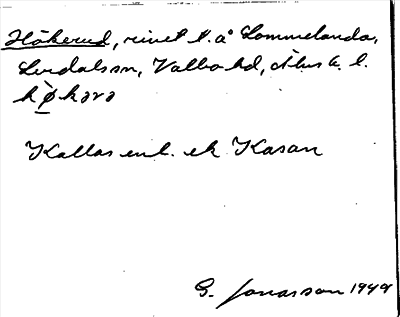 Håkerud, rivet t. å Lommelanda,
Lerdals sn, Valbo hd, Älvsb. l.
kø̀kərə
Kallas enl. ek Kasan
G. Jonasson 1949